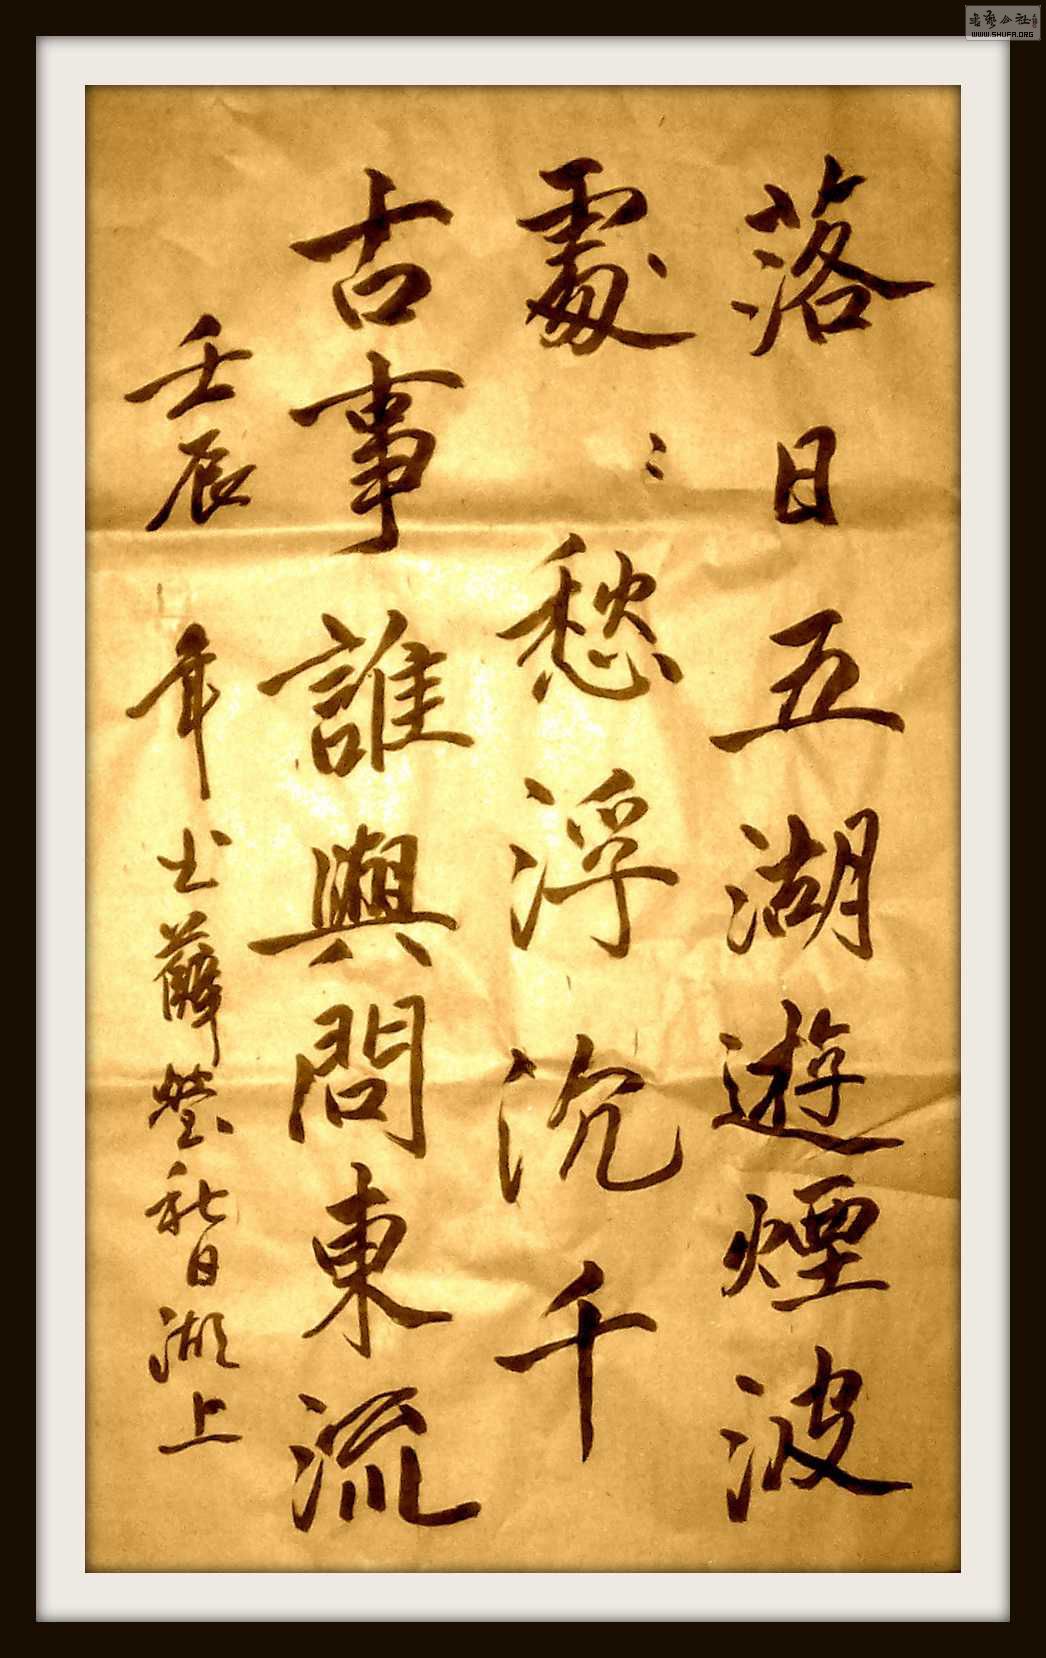 落日五湖遊煙波
處〻愁浮沉千
古事誰與問東流
壬辰年书薛瑩秋日湖上
書藝公社
WWW.SHUFA.ORG